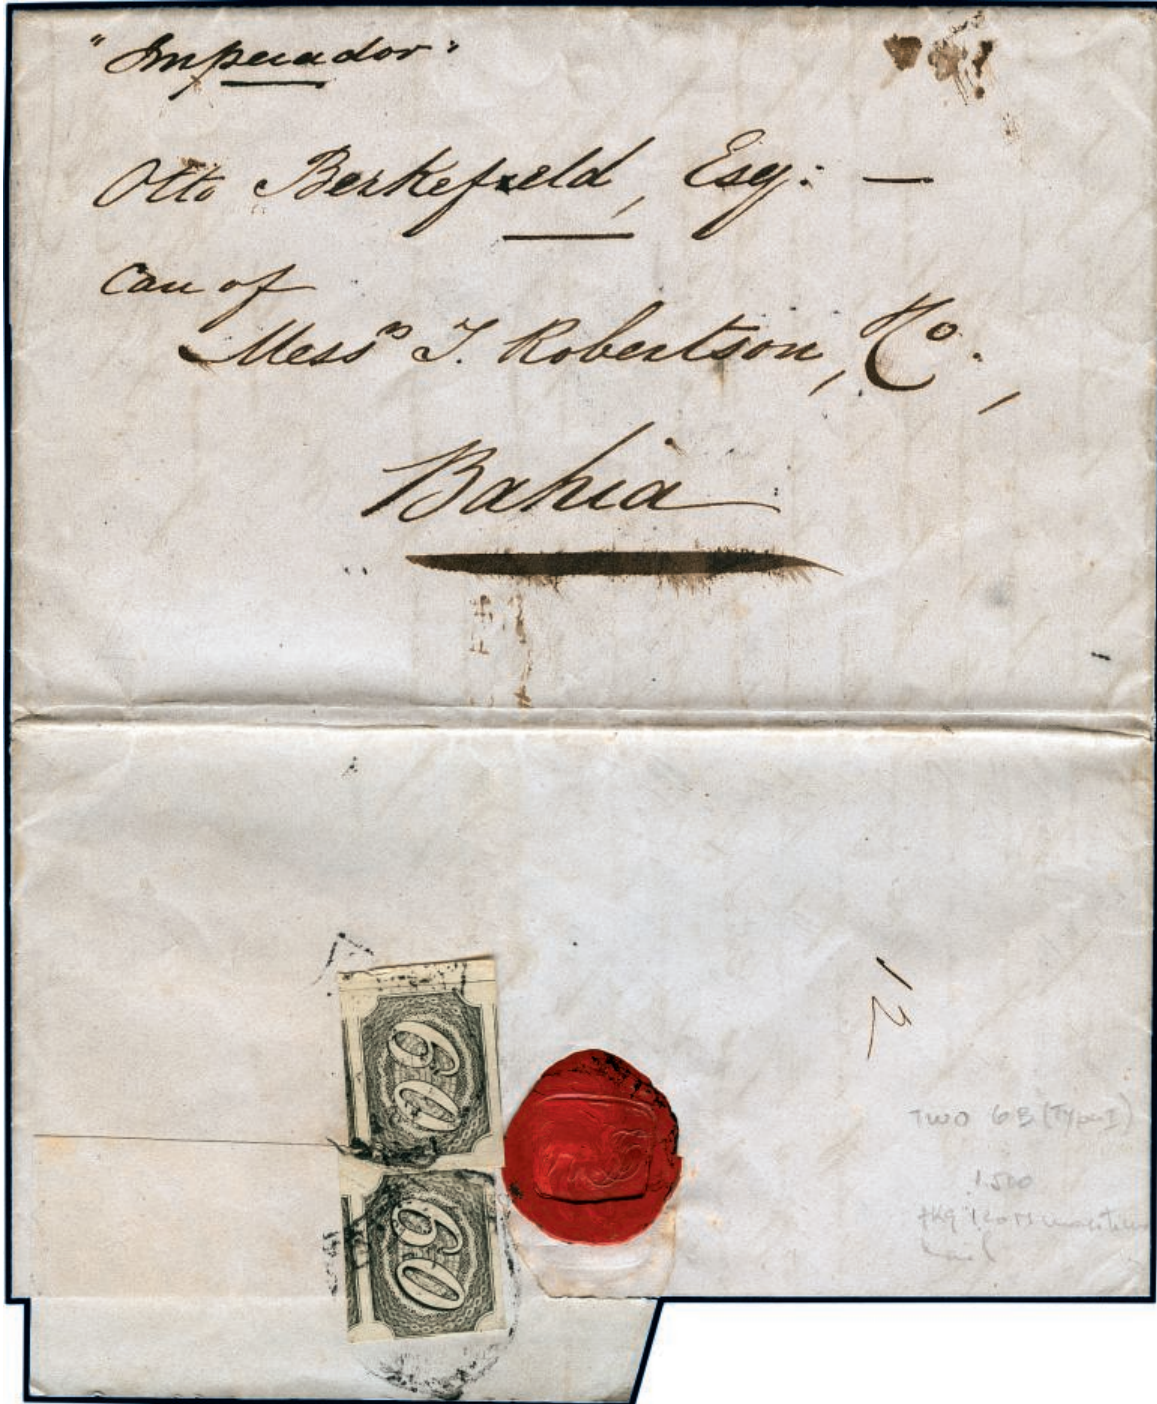 "Imperador"
Otto Berkefeld, Esq: —
Care of
Mess.rs J. Robertson, & Co.,
Bahia
12
60
60
TWO 6B (Type I)
1.500